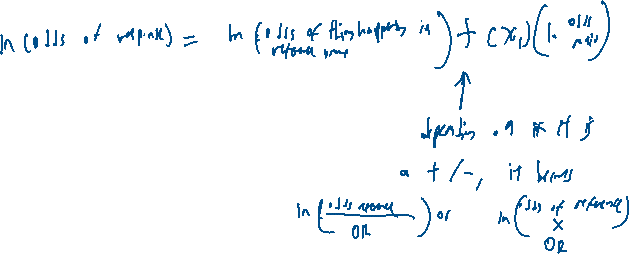 ln (odds of response) = ln (odds of this happening in reference group) + (x₁) (ln odds ratio)
depending on if it is
a + / -, it becomes
ln (odds reference / OR) or ln (odds of reference × OR)